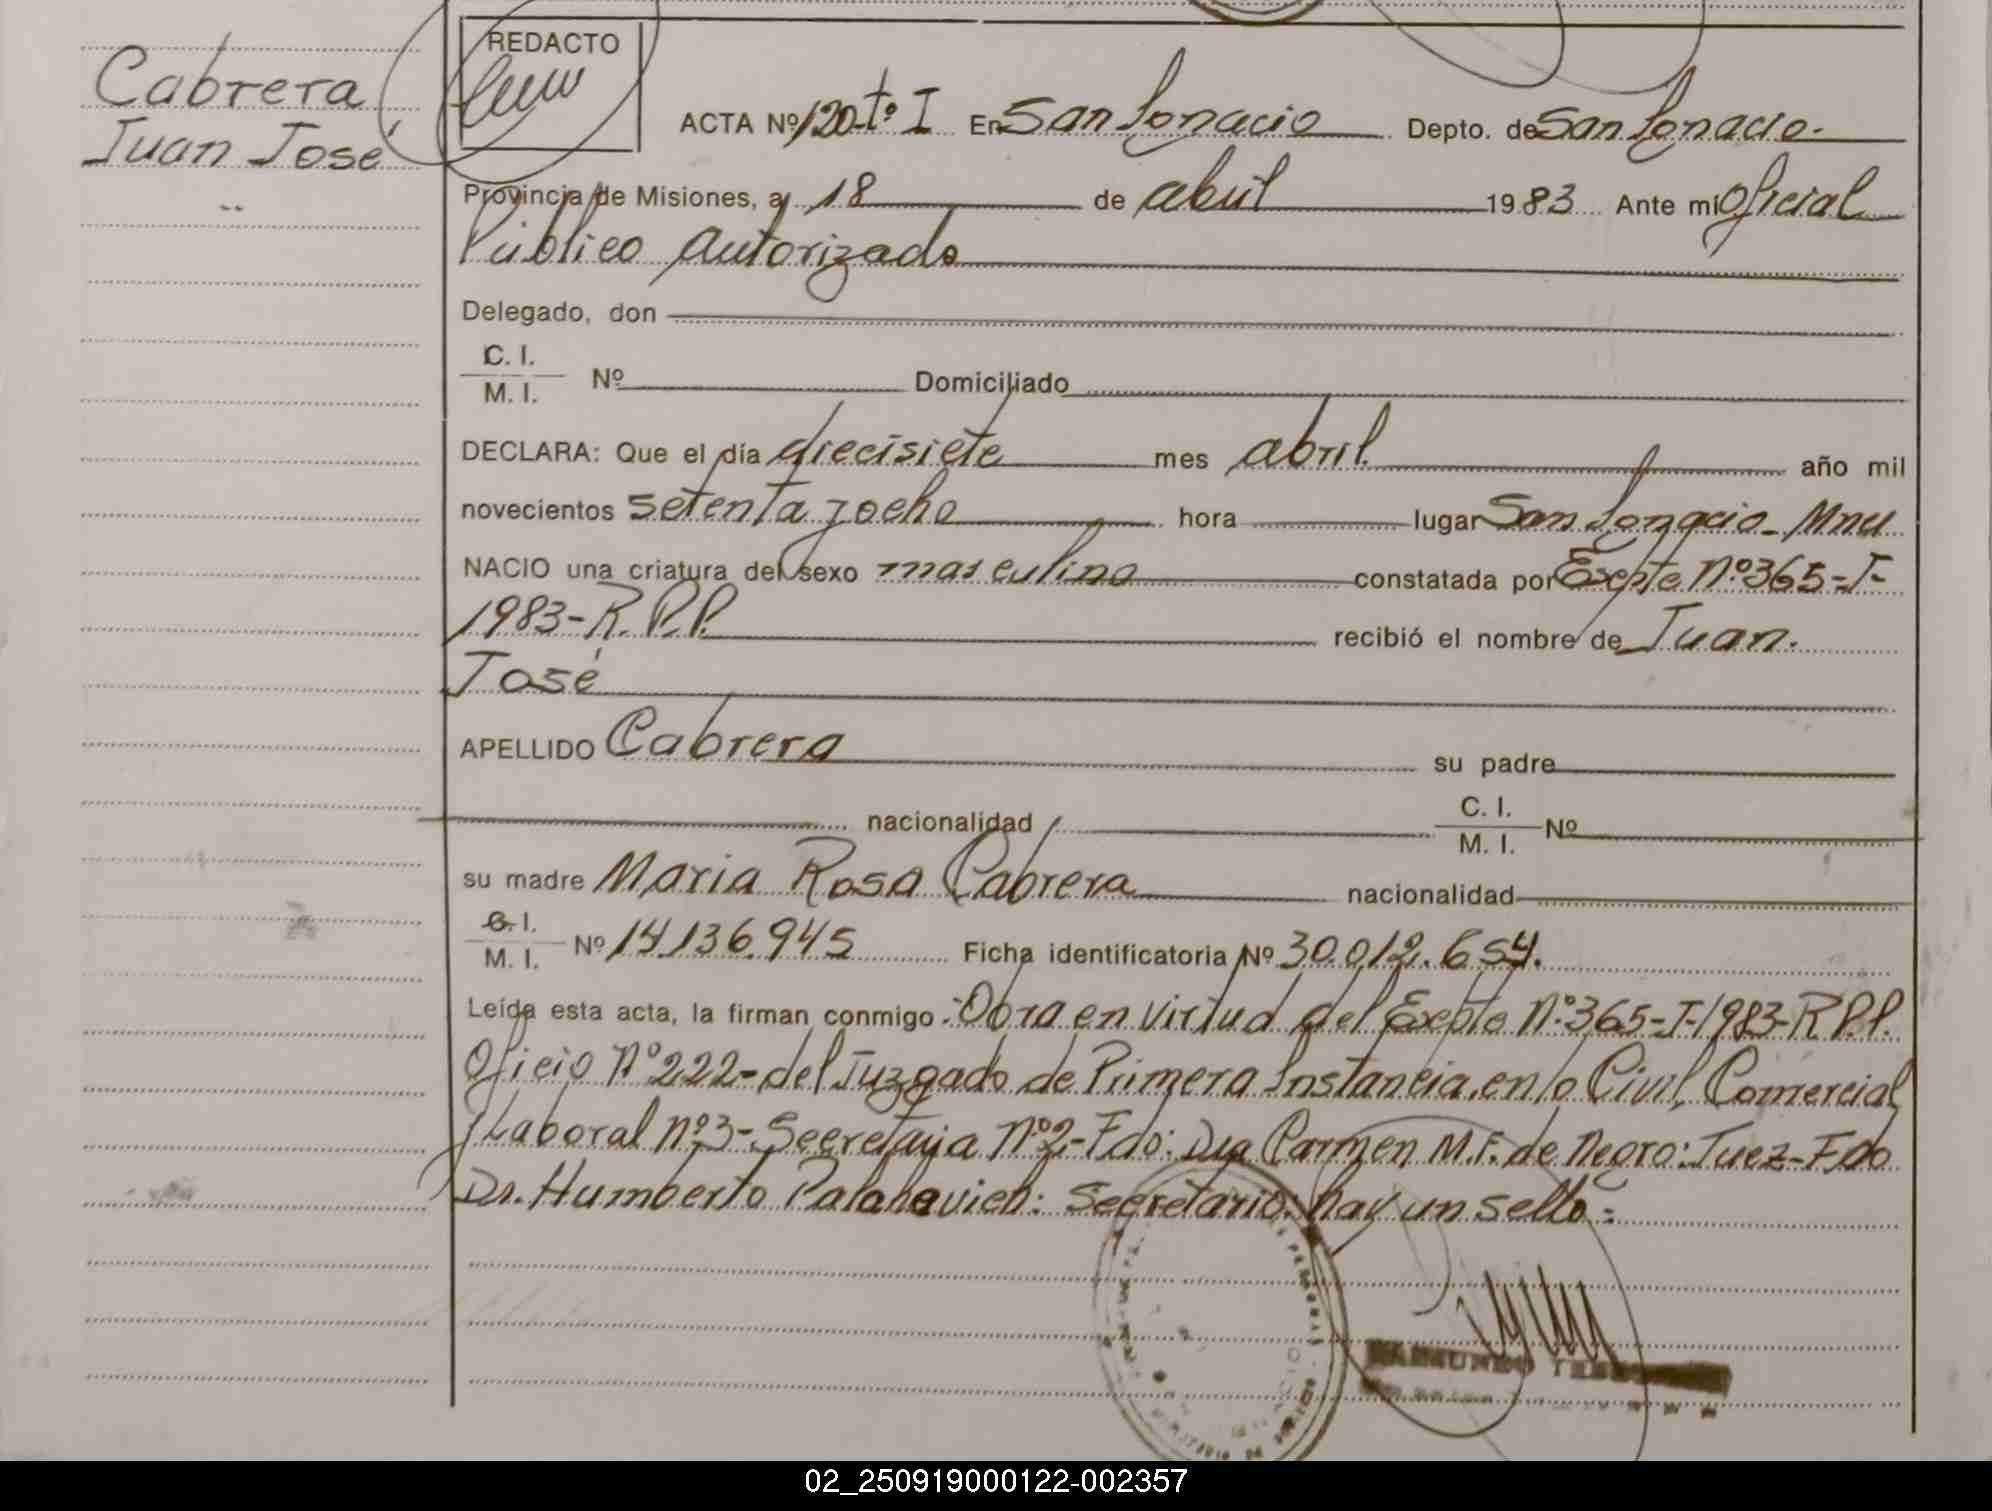 Cabrera
Juan José
REDACTO
ACTA Nº 120-tº I En San Ignacio Depto. de San Ignacio.
Provincia de Misiones, a 18 de abril 1983 Ante mí Oficial
Público Autorizado
Delegado, don
C. I.
M. I. Nº Domiciliado
DECLARA: Que el día diecisiete mes abril año mil
novecientos setenta y ocho hora lugar San Ignacio - Mnes
NACIO una criatura del sexo masculino constatada por Expte Nº 365-I-
1983-R.P.P. recibió el nombre de Juan.
José
APELLIDO Cabrera su padre
nacionalidad C. I.
M. I. Nº
su madre Maria Rosa Cabrera nacionalidad
C. I.
M. I. Nº 14136945 Ficha identificatoria Nº 30.012.654.
Leída esta acta, la firman conmigo -: Obra en virtud del Expte Nº 365-I-1983-R P.P.
Oficio Nº 222- del Juzgado de Primera Instancia en lo Civil, Comercial
y Laboral nº 3- Secretaria Nº 2- Fdo: Dra Carmen M.F. de Negro: Juez- Fdo
Dr. Humberto Secretario: hay un sello:
02_250919000122-002357